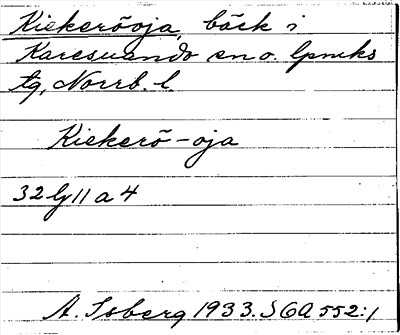 Kiekerõoja, bäck i
Karesuando sn o. lpmks
tg, Norrb. l.
Kiekerõ-oja
32 lj 11 a 4
A. Isberg 1933. SOA 552:1